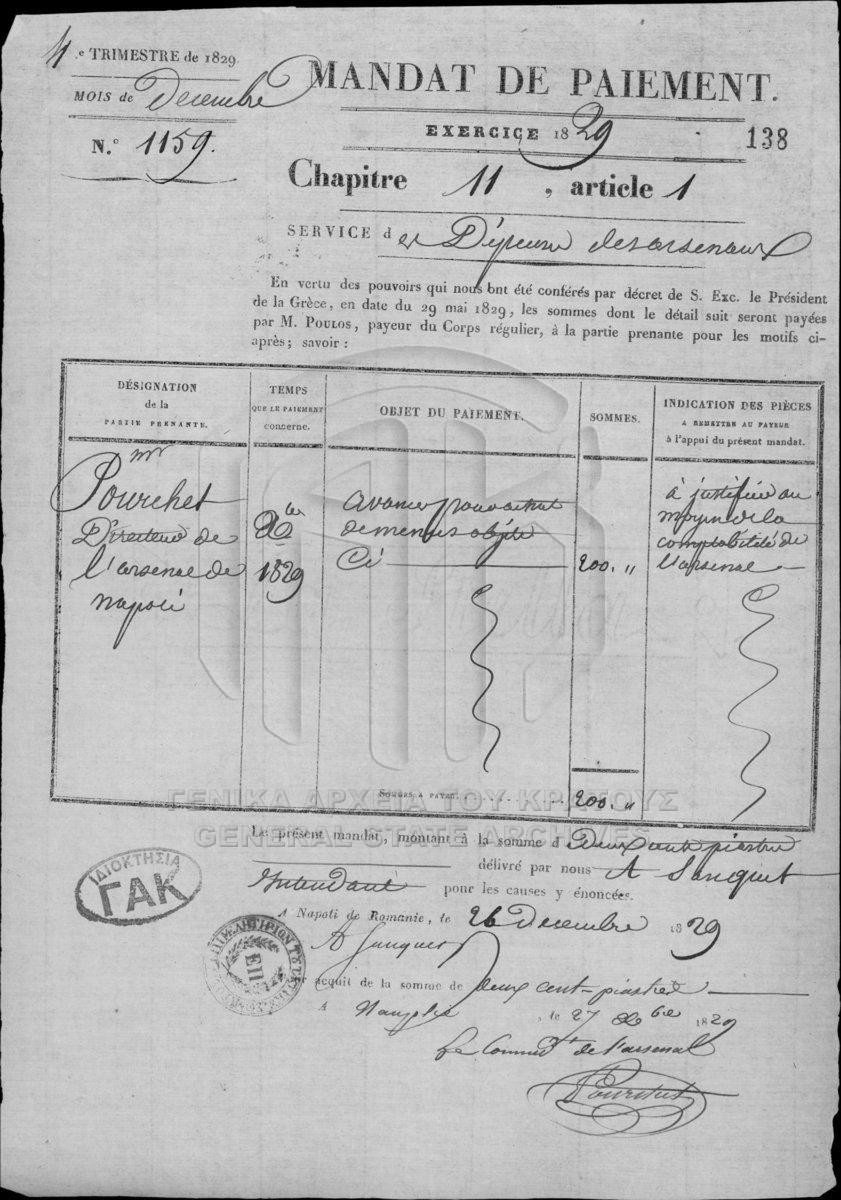 4.e TRIMESTRE de 1829
MOIS de Decembre
N.° 1159.
MANDAT DE PAIEMENT.
EXERCICE 1829
138
Chapitre 11, article 1
SERVICE des Dépense des arsenaux
En vertu des pouvoirs qui nous ont été conférés par décret de S. Exc. le Président
de la Grèce, en date du 29 mai 1829, les sommes dont le détail suit seront payées
par M. POULOS, payeur du Corps régulier, à la partie prenante pour les motifs ci-
après; savoir:
DÉSIGNATION
de la
PARTIE PRENANTE.
TEMPS
QUE LE PAIEMENT
concerne.
OBJET DU PAIEMENT.
SOMMES.
INDICATION DES PIÈCES
A REMETTRE AU PAYEUR
à l'appui du présent mandat.
Mr
Pourchet
Directeur de
l'arsenal de
napoli
Xber
1829
avance pour achat
de menus objets
Ci
200. "
à justifier au
moyen de la
comptabilité de
l'arsenal
SOMMES A PAYER
200. "
ΓΕΝΙΚΑ ΑΡΧΕΙΑ ΤΟΥ ΚΡΑΤΟΥΣ
GENERAL STATE ARCHIVES
Le présent mandat, montant à la somme d Deux cent piastres
délivré par nous A Sanquet
Intendant pour les causes y énoncées.
A Napoli de Romanie, le 26 Decembre 1829
A Sanquet
ΙΔΙΟΚΤΗΣΙΑ
ΓΑΚ
acquit de la somme de deux cent piastres
A Nauplie, le 27 Xbre 1829
Le Commdt de l'arsenal
Pourchet